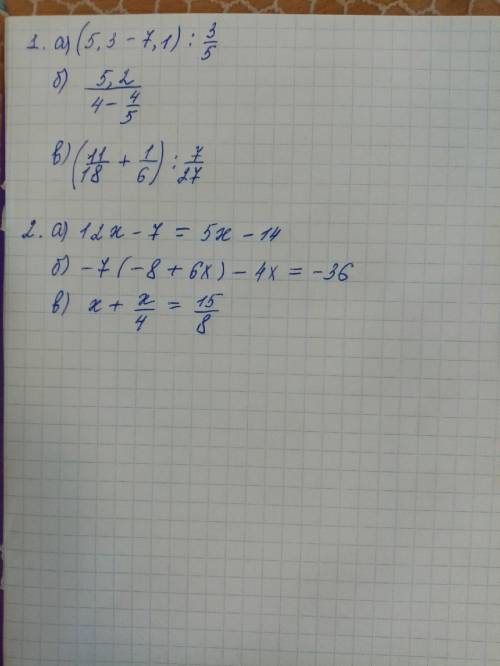 1. а) (5,3 - 7,1) : 3/5
б) 5,2 / (4 - 4/5)
в) (11/18 + 1/6) : 7/27
2. а) 12x - 7 = 5x - 14
б) -7(-8 + 6x) - 4x = -36
в) x + x/4 = 15/8